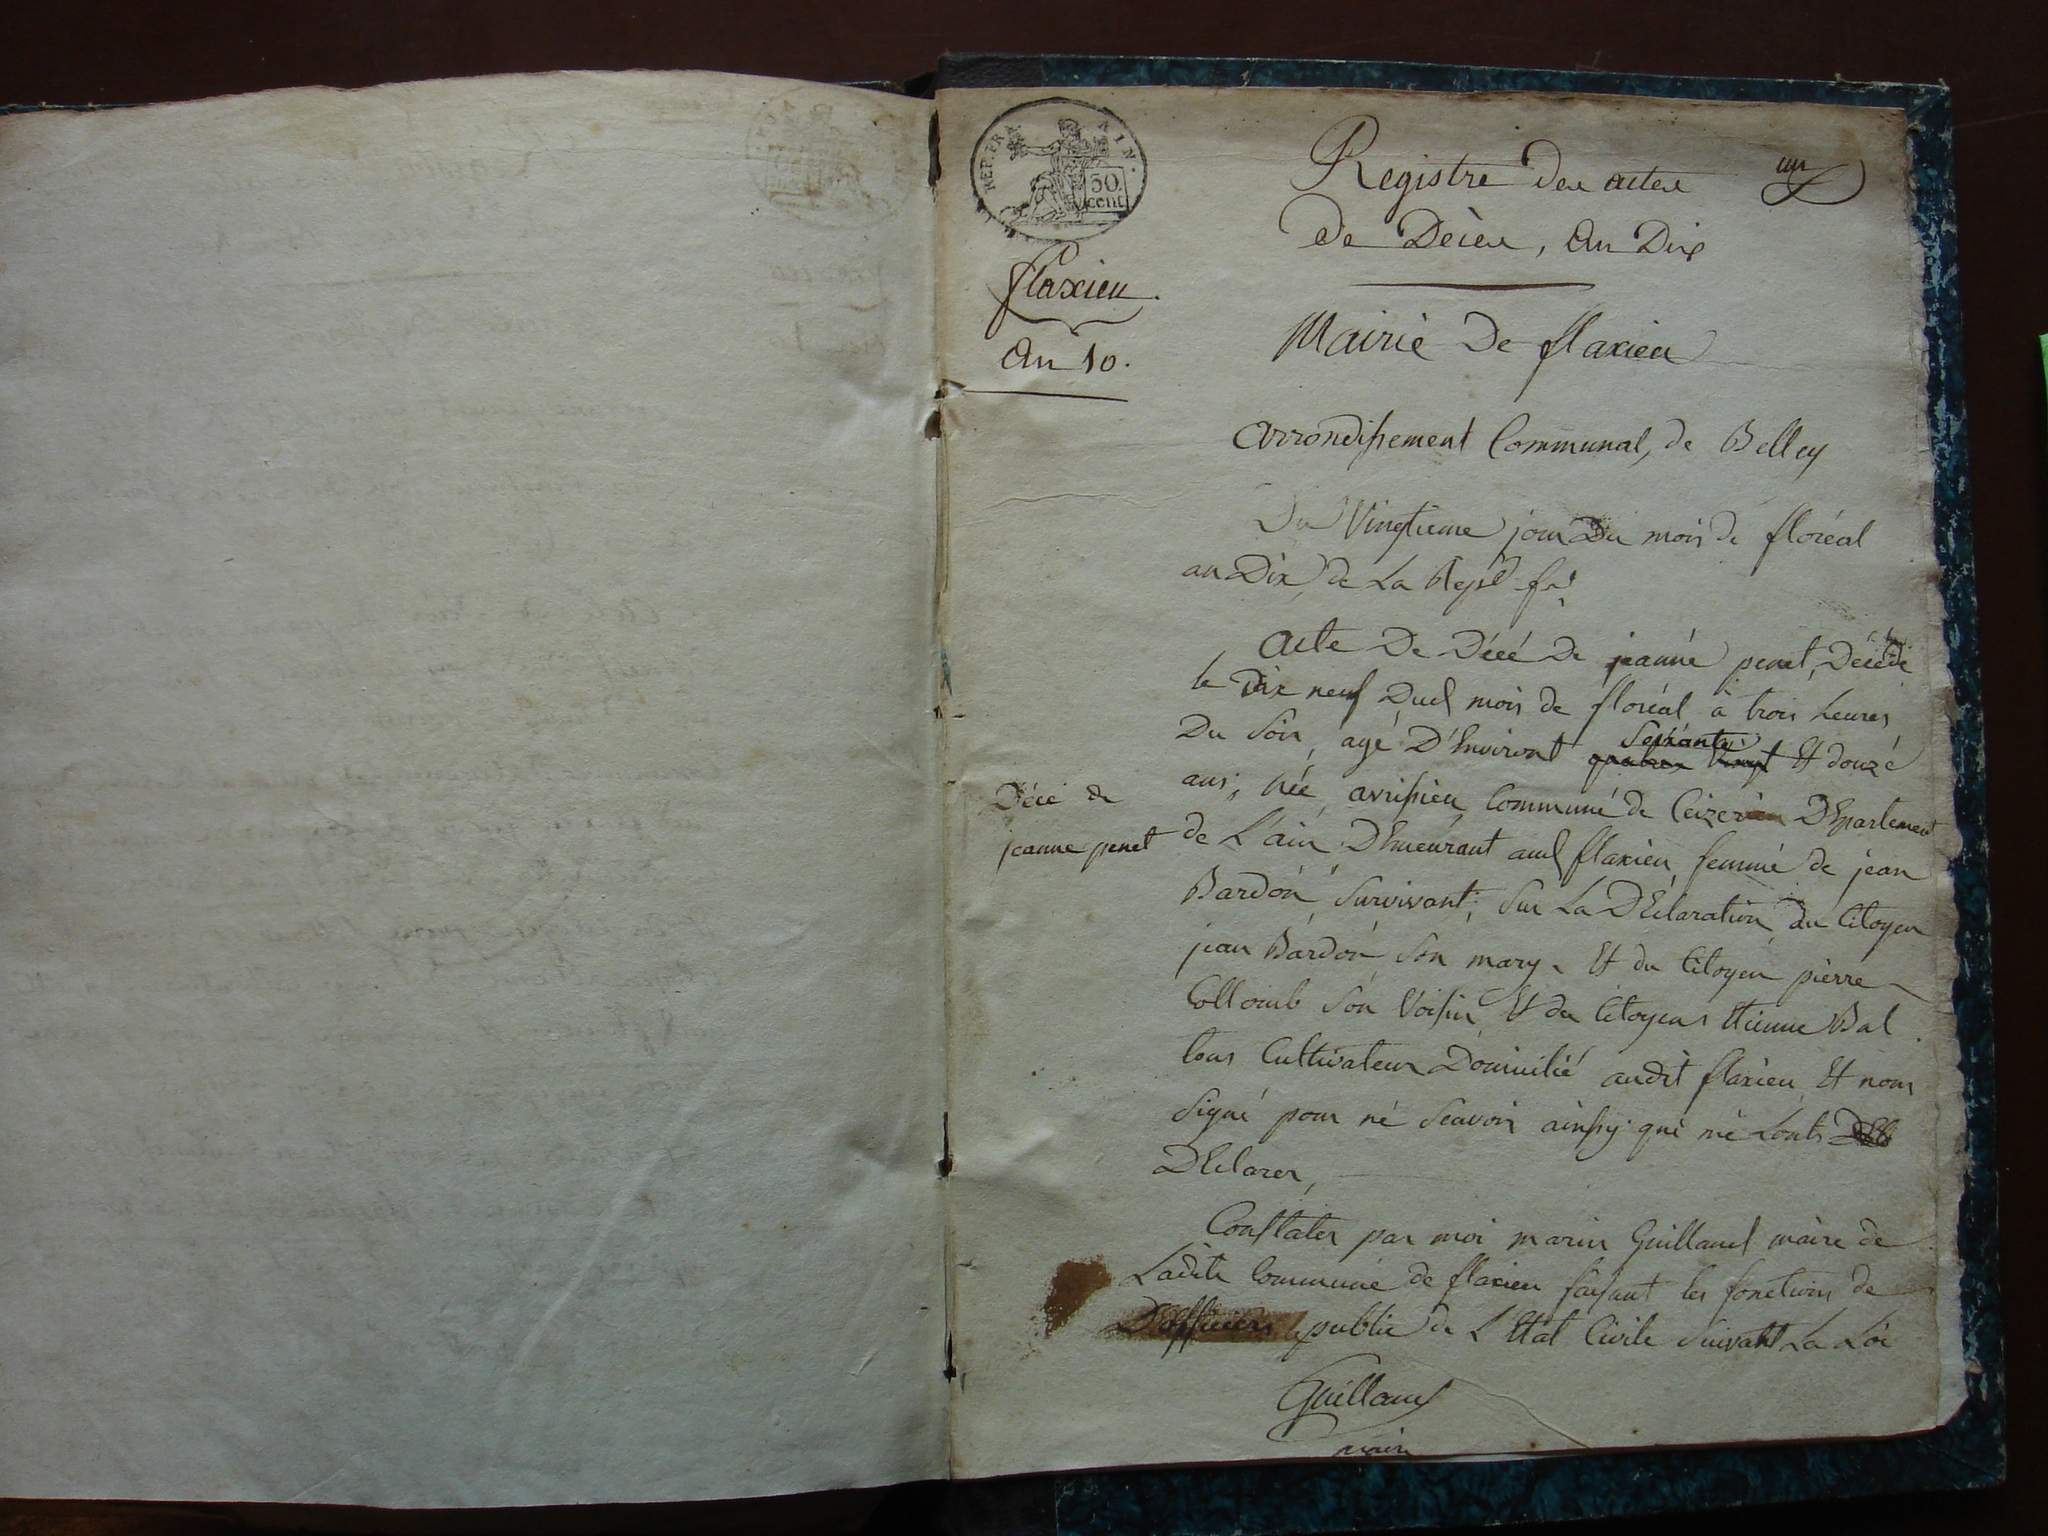 REP. FRA.
AIN.
50
cent
flaxieu.
An 10.
un
Registre Des actes
de Décès, An Dix
Mairie De flaxieu
Arrondissement Communal, de Belley
Du Vingtieme jour Du mois de floréal
an Dix de La Repe fse
Acte De Décé De jeanne penet, Décédé
le Dix neuf Dud mois de floréal à trois heures
Du Soir, agé D'Environt quatre vingt Seixante Et douze
ans, née avrissieu Communé de Ceizerieu DEpartement
Décé de
jeanne penet
de L'ain DEmeurant aud flaxieu, femme de jean
Bardon Survivant, Sur La DEclaration du Citoyen
jean Bardon Son mary, Et du Citoyen pierre
Collomb Son Voisin Et du Citoyens Etienne Bal
tous Cultivateur Domicilié audit flaxieu, Et nom
Signé pour né Scavoir ainsy qui mé Lonts
DEclarer,
Constater par moi marin Guilland maire de
Ladite Communé de flaxieu faisant les fonctions de
D'officier public de L'Etat Civile Suivant La Loi
Guilland
maire